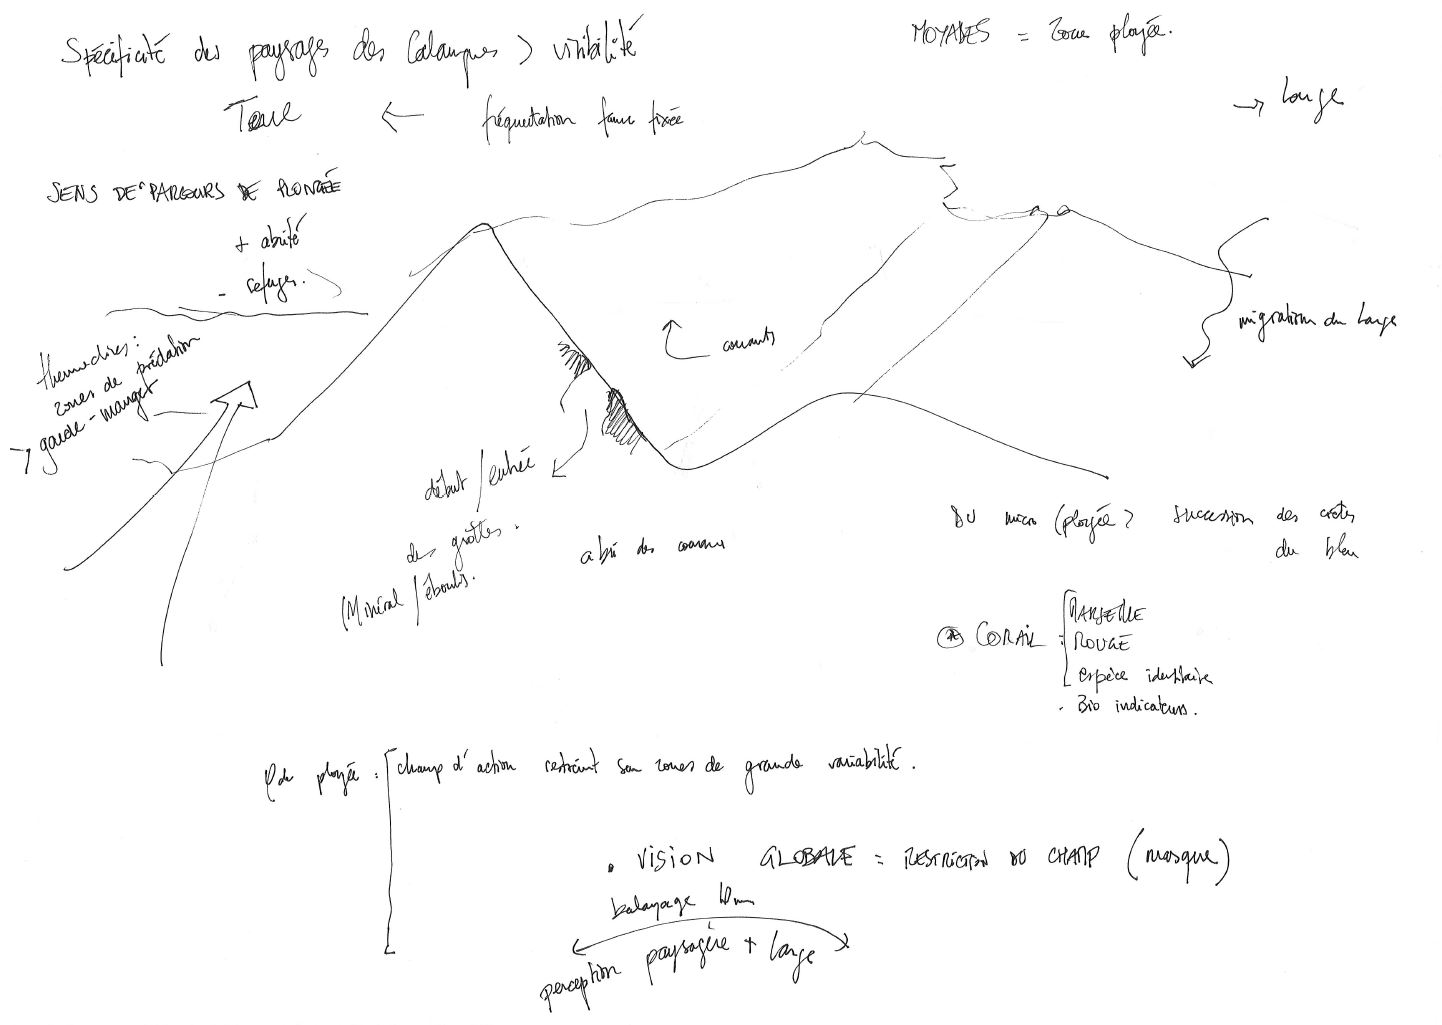 Spécificité des paysages des Calanques > visibilité
MOYADES = Zone plongée.
→ Large
← fréquentation faune fixée
SENS DE PARCOURS DE PLONGÉE
+ abrité
- refuges.
thermoclines :
zones de prédation
→ garde-manger
courants
migration du large
début / entrée
des grottes.
(Minéral / éboulis.
abri des courants
DU micro (plongée > succession des crêtes
du bleu
CORAIL : MARSEILLE
ROUGE
espèce identitaire
. Bio indicateurs.
plongée : champ d'action restreint sur zones de grande variabilité.
. VISION GLOBALE = RESTRICTION DU CHAMP (masque)
balayage
perception paysagère + large